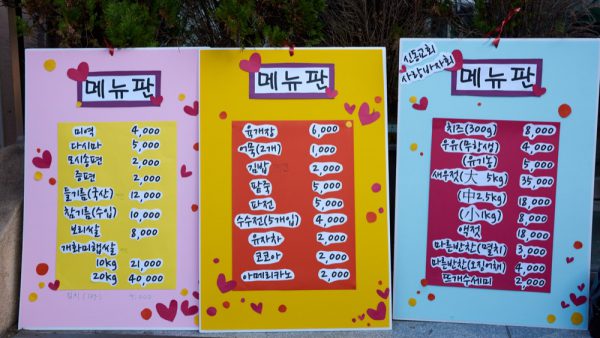 메뉴판
미역 4,000
다시마 5,000
모시송편 2,000
증편 2,000
들기름(국산) 12,000
참기름(수입) 10,000
보리쌀 8,000
개화미햅쌀
10kg 21,000
20kg 40,000
메뉴판
육개장 6,000
어묵(2개) 1,000
김밥 2,000
팥죽 5,000
파전 5,000
수수전(5개입) 4,000
유자차 2,000
코코아 2,000
아메리카노 2,000
신동교회
사랑바자회
메뉴판
치즈(300g) 8,000
우유(무항생) 4,000
(유기농) 5,000
새우젓(大 5kg) 35,000
(中2.5kg) 18,000
(小1kg) 8,000
액젓 18,000
마른반찬(멸치) 3,000
마른반찬(오징어채) 4,000
뜨개수세미 2,000